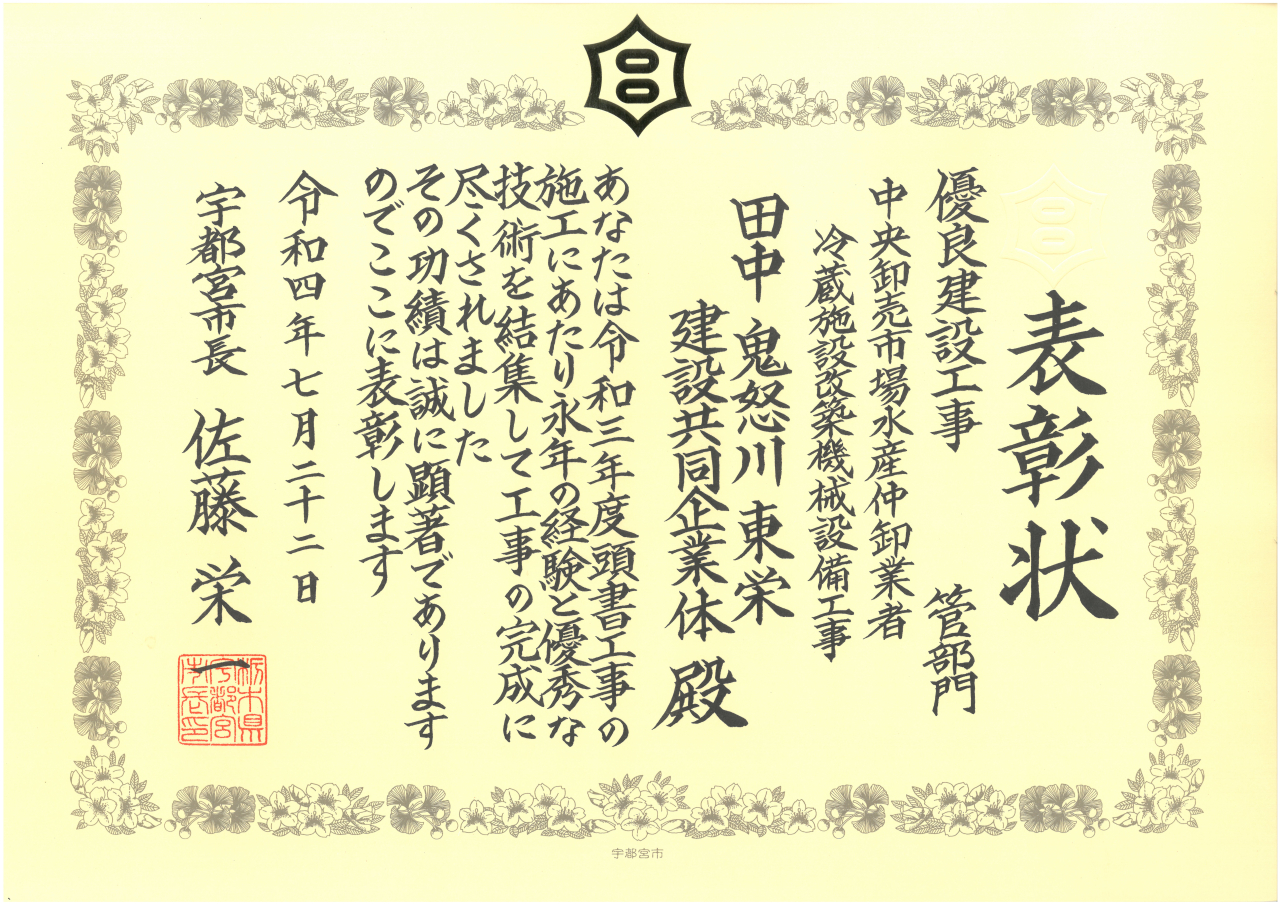 表彰状
優良建設工事 管部門
中央卸売市場水産仲卸業者
冷蔵施設改築機械設備工事
田中 鬼怒川 東栄
建設共同企業体 殿
あなたは令和三年度頭書工事の
施工にあたり永年の経験と優秀な
技術を結集して工事の完成に
尽くされました
その功績は誠に顕著であります
のでここに表彰します
令和四年七月二十二日
宇都宮市長 佐藤 栄一
栃木県
宇都宮
市長印
宇都宮市